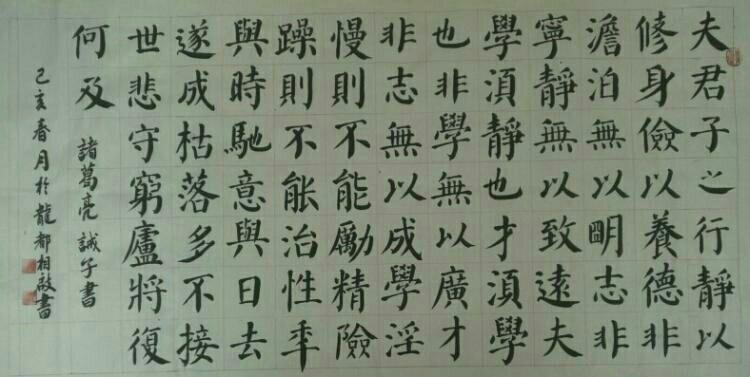 夫君子之行靜以
修身儉以養德非
澹泊無以明志非
寧靜無以致遠夫
學湏靜也才湏學
也非學無以廣才
非志無以成學淫
慢則不能勵精險
躁則不能治性年
與時馳意與日去
遂成枯落多不接
世悲守窮廬將復
何及
諸葛亮誡子書
己亥春月於龍都相啟書